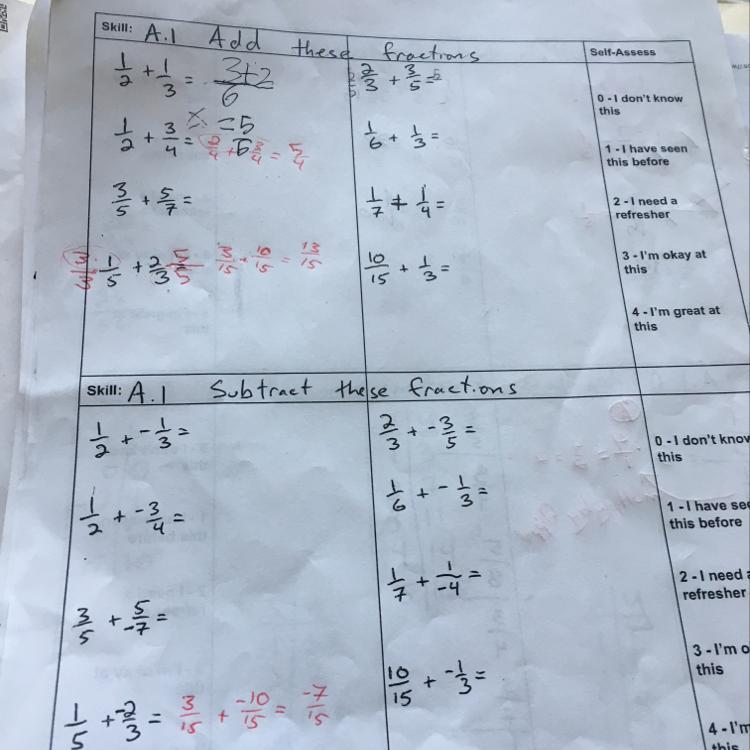 Skill: A.1 Add these fractions
Self-Assess
1/2 + 1/3 = 3+2/6
= 5/6
2/3 + 3/5 =
1/2 + 3/4 = 2/4 + 3/4 = 5/4
1/6 + 1/3 =
3/5 + 5/7 =
1/7 + 1/4 =
3/3 1/5 + 2/3 5/5 3/15 + 10/15 = 13/15
10/15 + 1/3 =
0 - I don't know
this
1 - I have seen
this before
2 - I need a
refresher
3 - I'm okay at
this
4 - I'm great at
this
Skill: A.1 Subtract these fractions
1/2 + -1/3 =
2/3 + -3/5 =
1/2 + -3/4 =
1/6 + -1/3 =
3/5 + 5/-7 =
1/7 + 1/-4 =
1/5 + -2/3 = 3/15 + -10/15 = -7/15
10/15 + -1/3 =
0 - I don't know
this
1 - I have see
this before
2 - I need a
refresher
3 - I'm o
this
4 - I'm
this